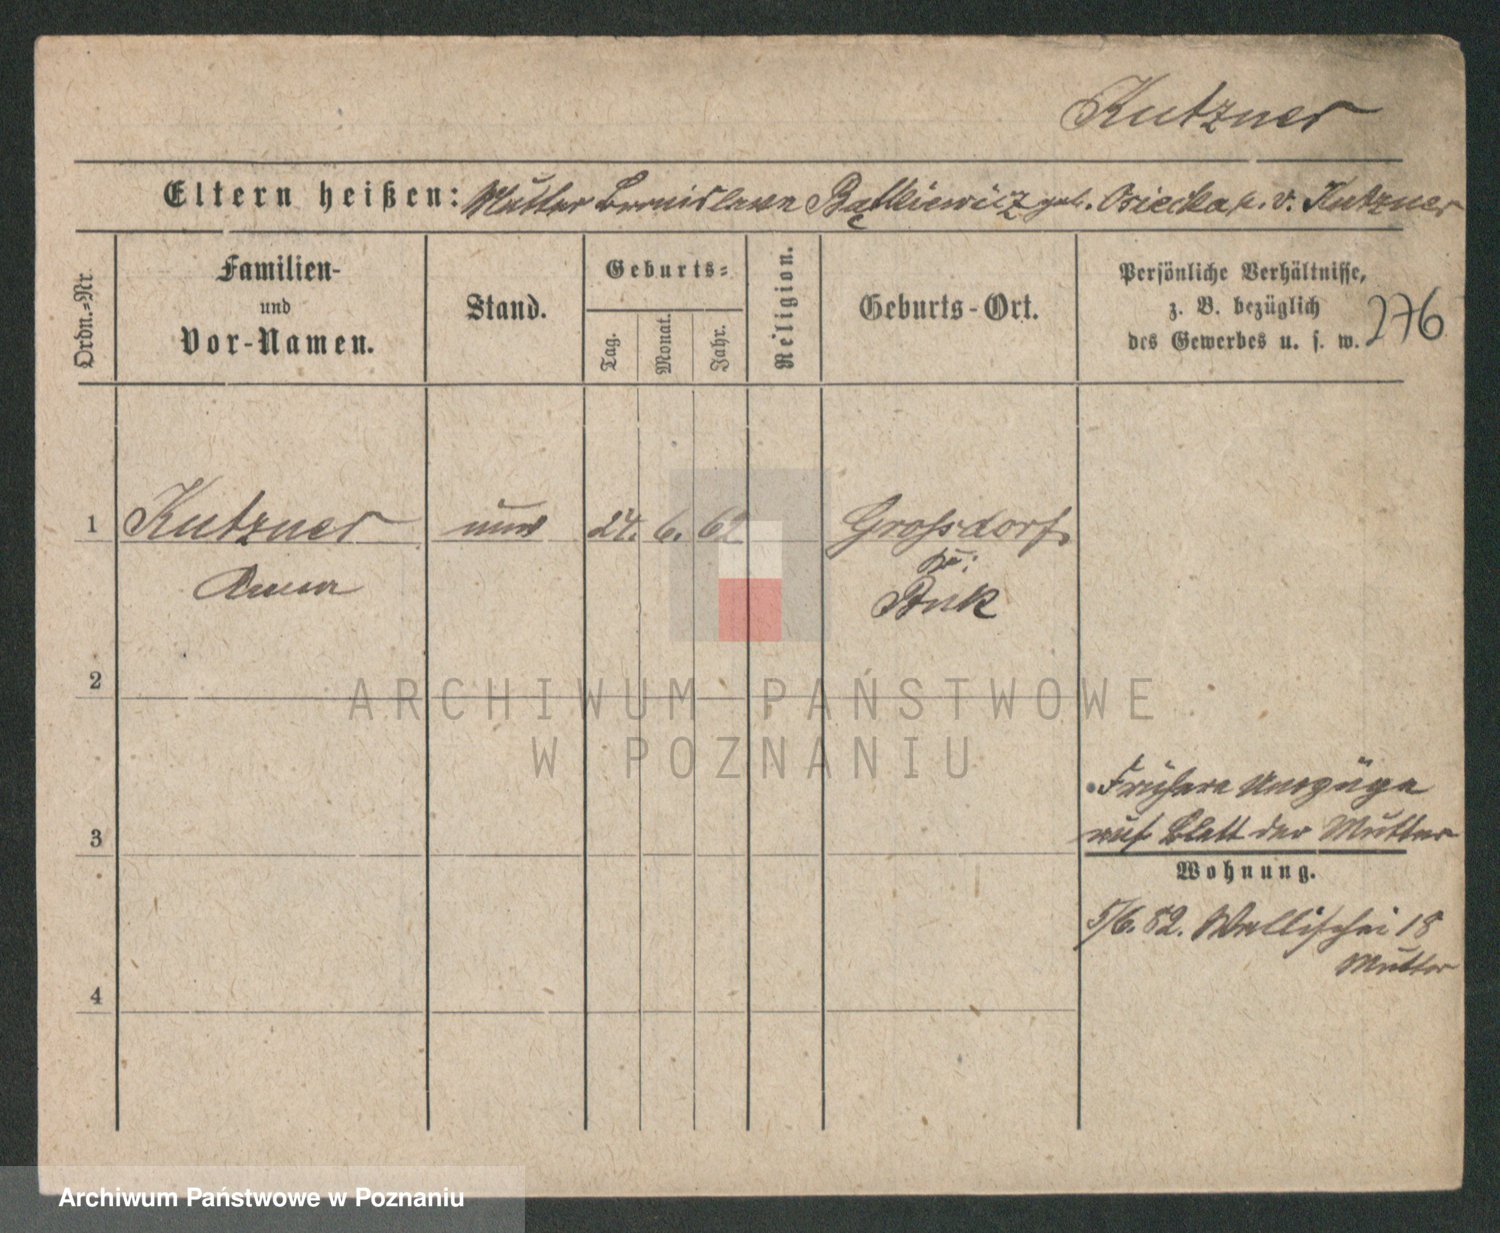 Kutzner
Eltern heißen: Mutter Bronislawa Bątkiewicz geb. Osiecka v. Kutzner
Ordn.-Nr.
Familien-
und
Vor-Namen.
Stand.
Geburts-
Tag.
Monat.
Jahr.
Religion.
Geburts-Ort.
Persönliche Verhältnisse,
z. B. bezüglich
des Gewerbes u. s. w.
276
1 Kutzner 24. 6. 62 Grossdorf
Anna
Buk
2
ARCHIWUM PAŃSTWOWE
W POZNANIU
Frühere Umzüge
auf Blatt der Mutter
3
Wohnung.
5/6.82. Wallischei 18
Mutter
4
Archiwum Państwowe w Poznaniu